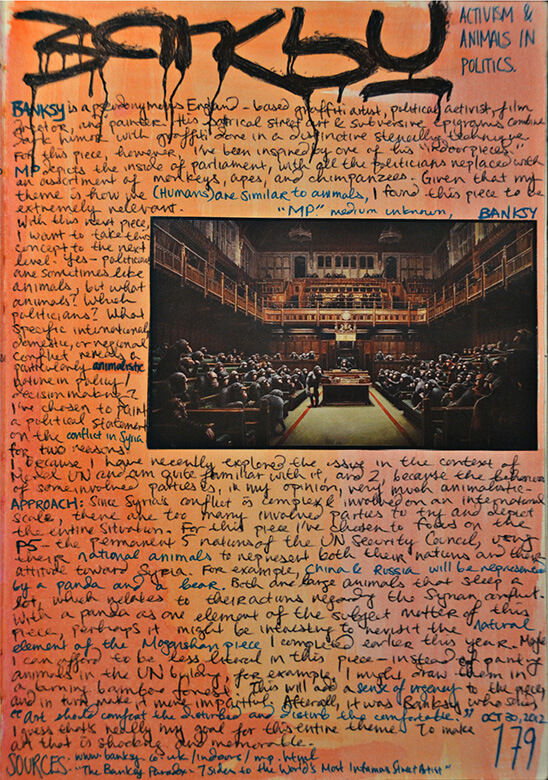 BANKSY
ACTIVISM &
ANIMALS IN
POLITICS.
BANKSY is a pseudonymous England-based graffiti artist, political activist, film
director, and painter. His satirical street art & subversive epigrams combine
dark humor with graffiti done in a distinctive stenciling technique.
For this piece, however, I've been inspired by one of his "indoor pieces".
MP depicts the inside of parliament, with all the politicians replaced with
an assortment of monkeys, apes, and chimpanzees. Given that my
theme is how we (Humans) are similar to animals, I found this piece to be
extremely relevant.
"MP" medium unknown, BANKSY
With this next piece,
I want to take this
concept to the next
level. Yes - politicians
are sometimes like
animals, but what
animals? Which
politicians? What
specific international,
domestic, or regional
conflict reveals a
particularly animalistic
nature in policy/
decision making?
I've chosen to paint
a political statement
on the conflict in Syria
for two reasons:
1, because I have recently explored the issue in the context of
Model UN and am quite familiar with it, and 2, because the behaviors
of some involved parties is, in my opinion, very much animalistic-
APPROACH: Since Syria's conflict is complex & involved on an international
scale, there are too many involved parties to try and depict
the entire situation. For this piece I've chosen to focus on the
P5 - the permanent 5 nations of the UN Security Council, using
their national animals to represent both their nations and their
attitude toward Syria. For example, China & Russia will be represented
by a panda and a bear. Both are large animals that sleep a
lot, which relates to their actions regarding the Syrian conflict.
With a panda as one element of the subject matter of this
piece, perhaps it might be interesting to revisit the natural
element of the piece I completed earlier this year. Maybe
I can afford to be less literal in this piece - instead of painting
animals in the UN building, for example, I might draw them in
a burning bamboo forest. This will add a sense of urgency to the piece,
and in turn make it more impactful. Afterall, it was Banksy who said
"Art should comfort the disturbed and disturb the comfortable." OCT 30, 2012
I guess that's really my goal for this entire theme. To make
art that is shocking and memorable.
179
SOURCES: www.banksy.co.uk/indoors/mp.html
"The Banksy Paradox - 7 Sides to the World's Most Infamous Street Artist"